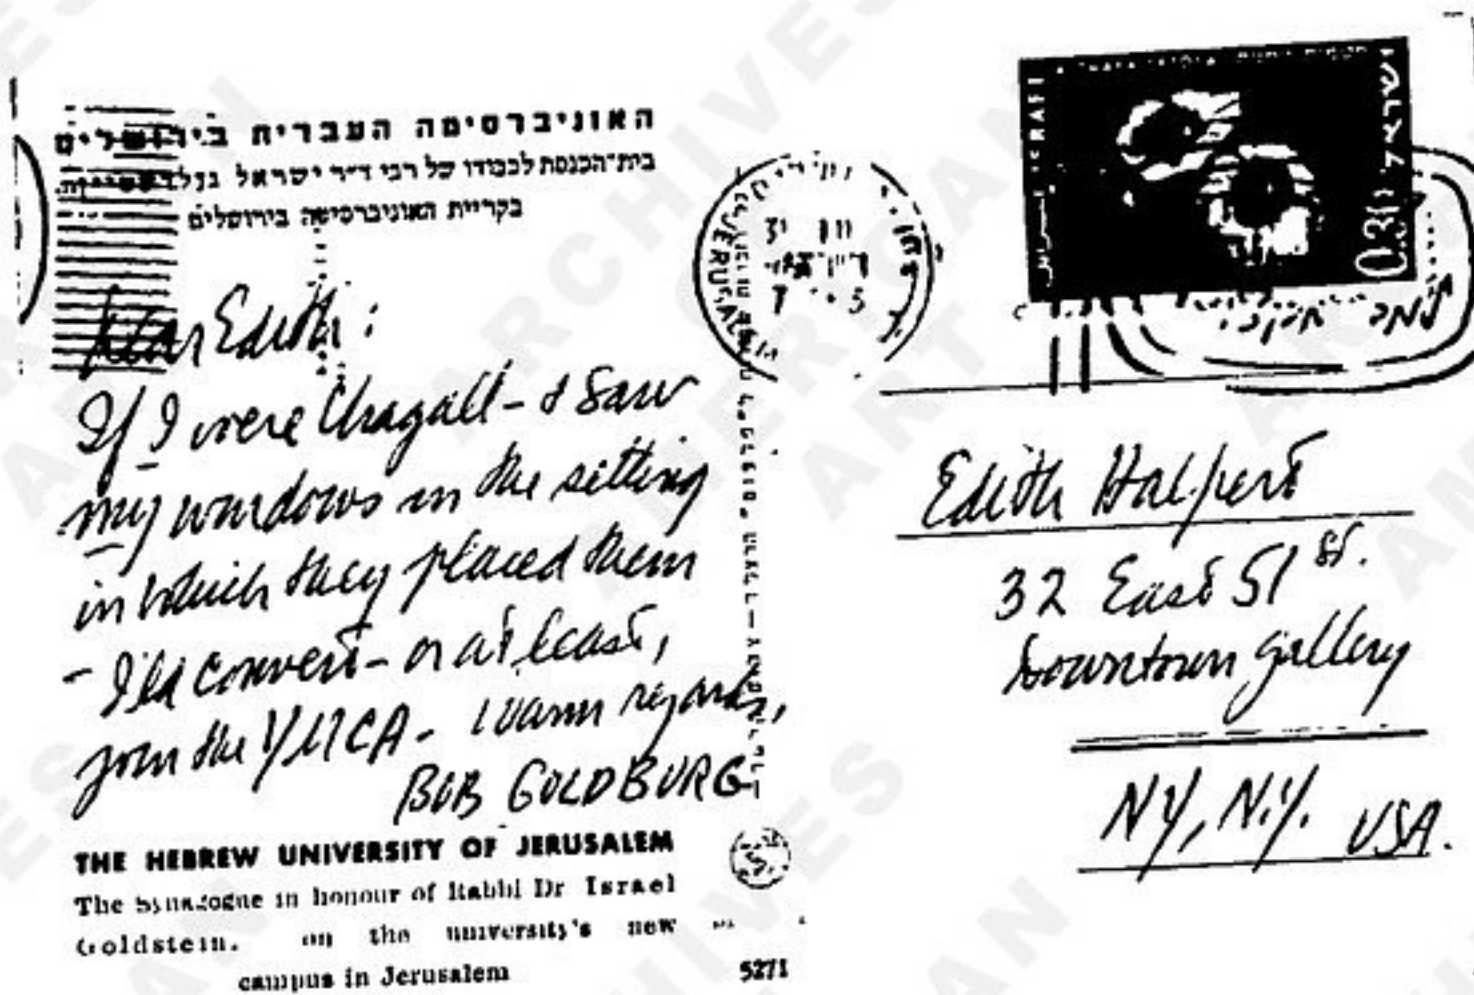 האוניברסיטה העברית בירושלים
בית־הכנסת לכבודו של רבי ד״ר ישראל גולדשטיין,
בקריית האוניברסיטה בירושלים
Dear Edith:
If I were Chagall - & saw
my windows in the setting
in which they placed them
- I'ld convert - or at least,
join the YMCA - Warm regards,
BOB GOLDBURG
THE HEBREW UNIVERSITY OF JERUSALEM
The Synagogue in honour of Rabbi Dr Israel
Goldstein. on the university's new
campus in Jerusalem
5271
JERUSALEM
ISRAEL
ישראל
0.30
Edith Halpert
32 East 51 St.
Downtown Gallery
NY, N.Y. USA.
ARCHIVES
AMERICAN
ART